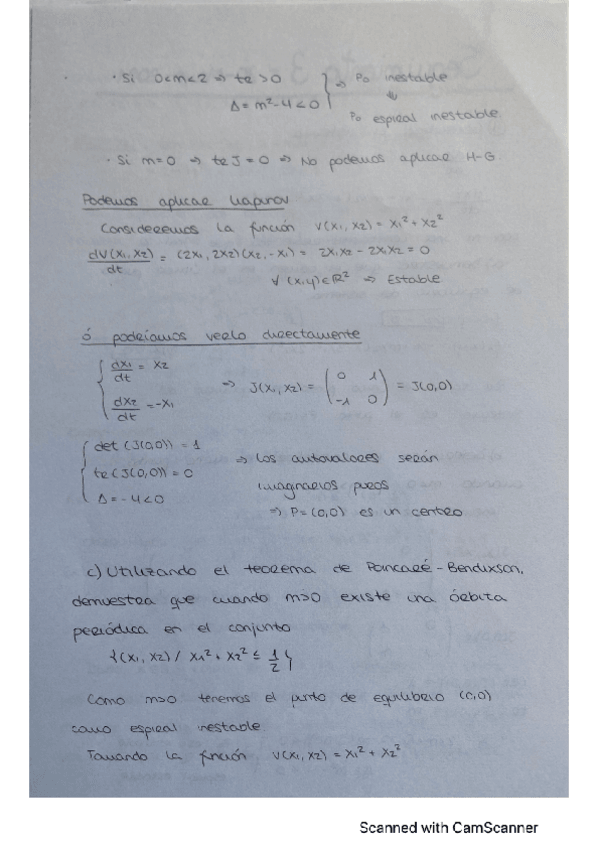 · Si 0<m<2 ⇒ tr >0 } ⇒ P₀ inestable
Δ = m²-4<0 ⇓
P₀ espiral inestable.
· Si m=0 ⇒ tr J = 0 ⇒ No podemos aplicar H-G.
Podemos aplicar Liapunov
Consideremos la función V(x₁, x₂) = x₁² + x₂²
dV(x₁, x₂)/dt = (2x₁, 2x₂)(x₂, -x₁) = 2x₁x₂ - 2x₁x₂ = 0
∀ (x,y)∈ℝ² ⇒ Estable
ó podríamos verlo directamente
{ dx₁/dt = x₂
dx₂/dt = -x₁ ⇒ J(x₁, x₂) = ( 0 1 ; -1 0 ) = J(0,0)
{ det (J(0,0)) = 1
tr (J(0,0)) = 0 ⇒ Los autovalores serán
Δ = -4<0 imaginarios puros
⇒ P=(0,0) es un centro
c) Utilizando el teorema de Poincaré-Bendixson,
demuestra que cuando m>0 existe una órbita
periódica en el conjunto
{(x₁, x₂) / x₁² + x₂² ≤ 1/2}
Como m>0 tenemos el punto de equilibrio (0,0)
como espiral inestable.
Tomando la función V(x₁, x₂) = x₁² + x₂²
Scanned with CamScanner